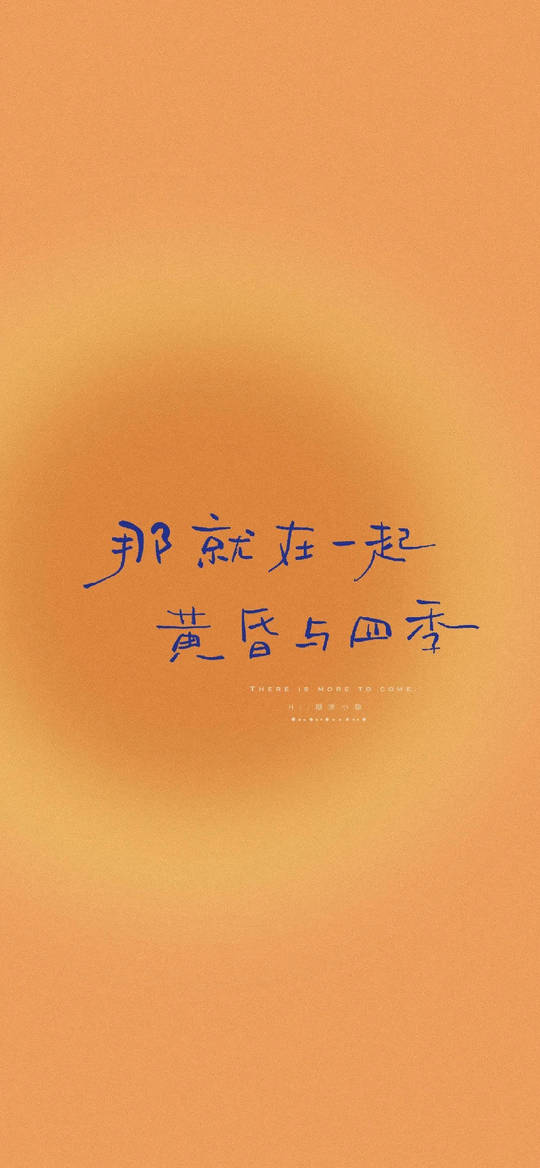 那就在一起
黄昏与四季
THERE IS MORE TO COME.